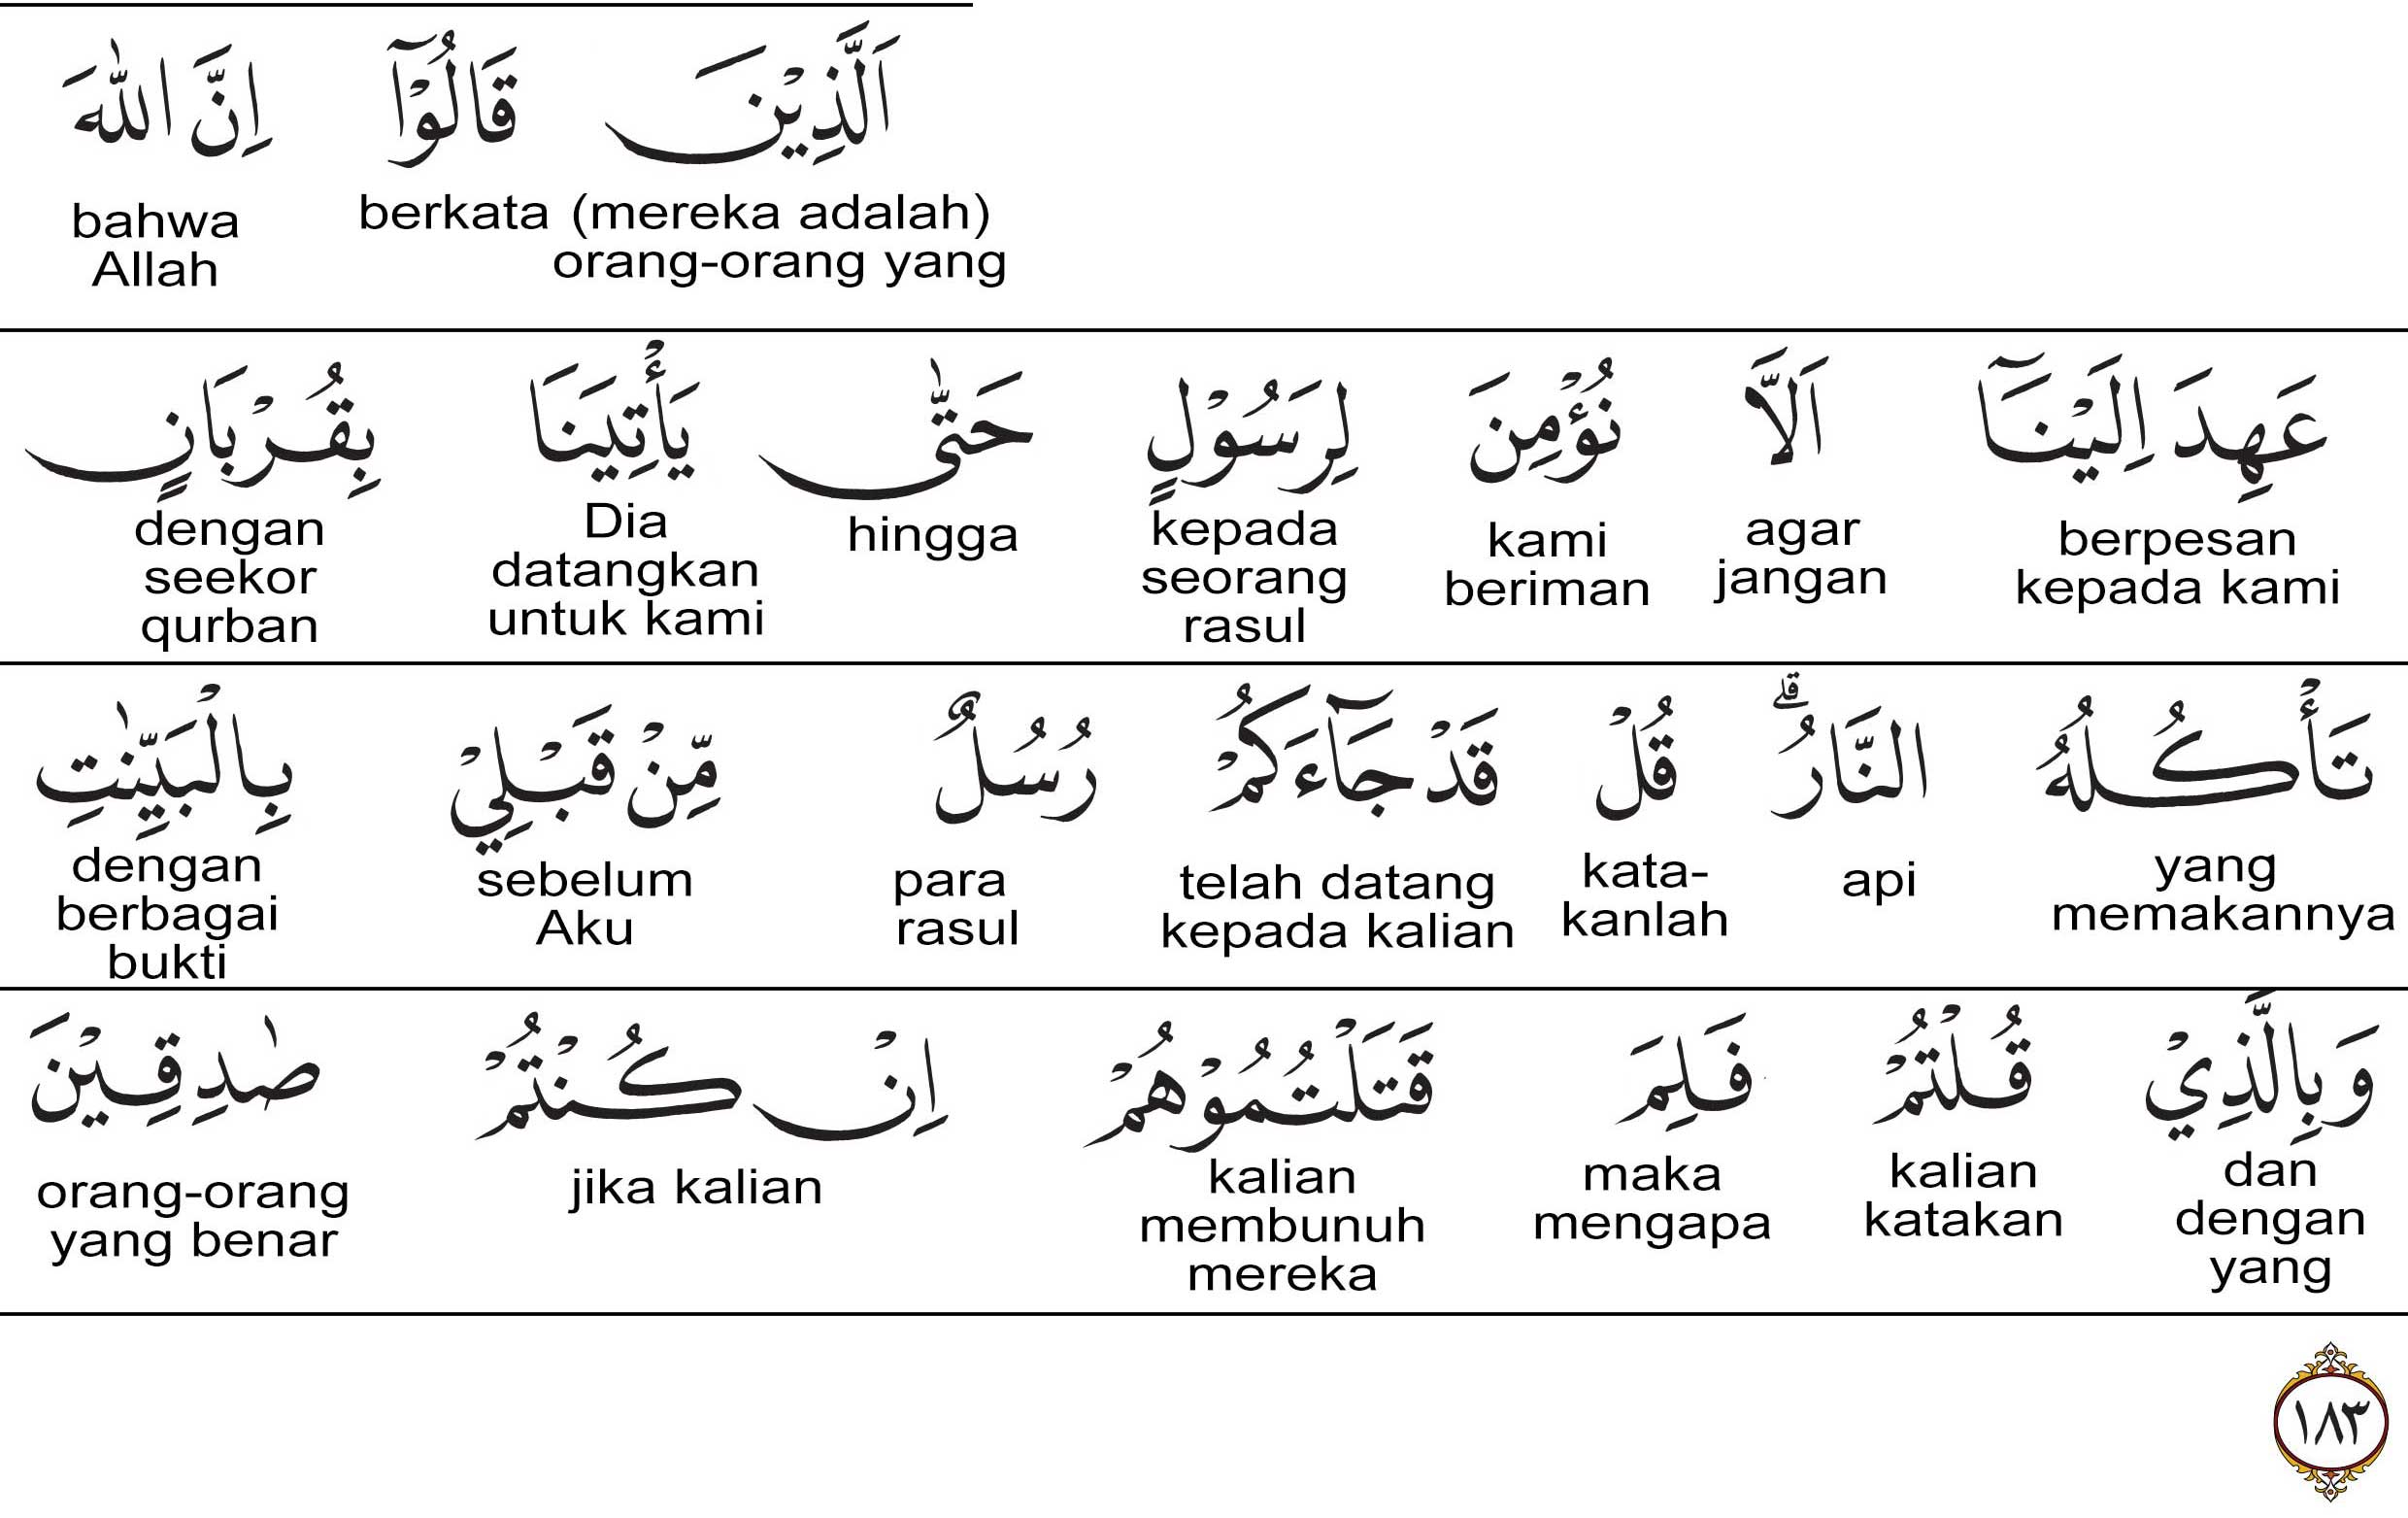 اَلَّذِيْنَ قَالُوْٓا اِنَّ اللّٰهَ
bahwa berkata (mereka adalah)
Allah orang-orang yang
عَهِدَ اِلَيْنَآ اَلَّا نُؤْمِنَ لِرَسُوْلٍ حَتّٰى يَأْتِيَنَا بِقُرْبَانٍ
dengan Dia hingga kepada kami agar berpesan
seekor datangkan seorang beriman jangan kepada kami
qurban untuk kami rasul
تَأْكُلُهُ النَّارُ ۗ قُلْ قَدْ جَاۤءَكُمْ رُسُلٌ مِّنْ قَبْلِيْ بِالْبَيِّنٰتِ
dengan sebelum para telah datang kata- api yang
berbagai Aku rasul kepada kalian kanlah memakannya
bukti
وَبِالَّذِيْ قُلْتُمْ فَلِمَ قَتَلْتُمُوْهُمْ اِنْ كُنْتُمْ صٰدِقِيْنَ
orang-orang jika kalian kalian maka kalian dan
yang benar membunuh mengapa katakan dengan
mereka yang
١٨٣